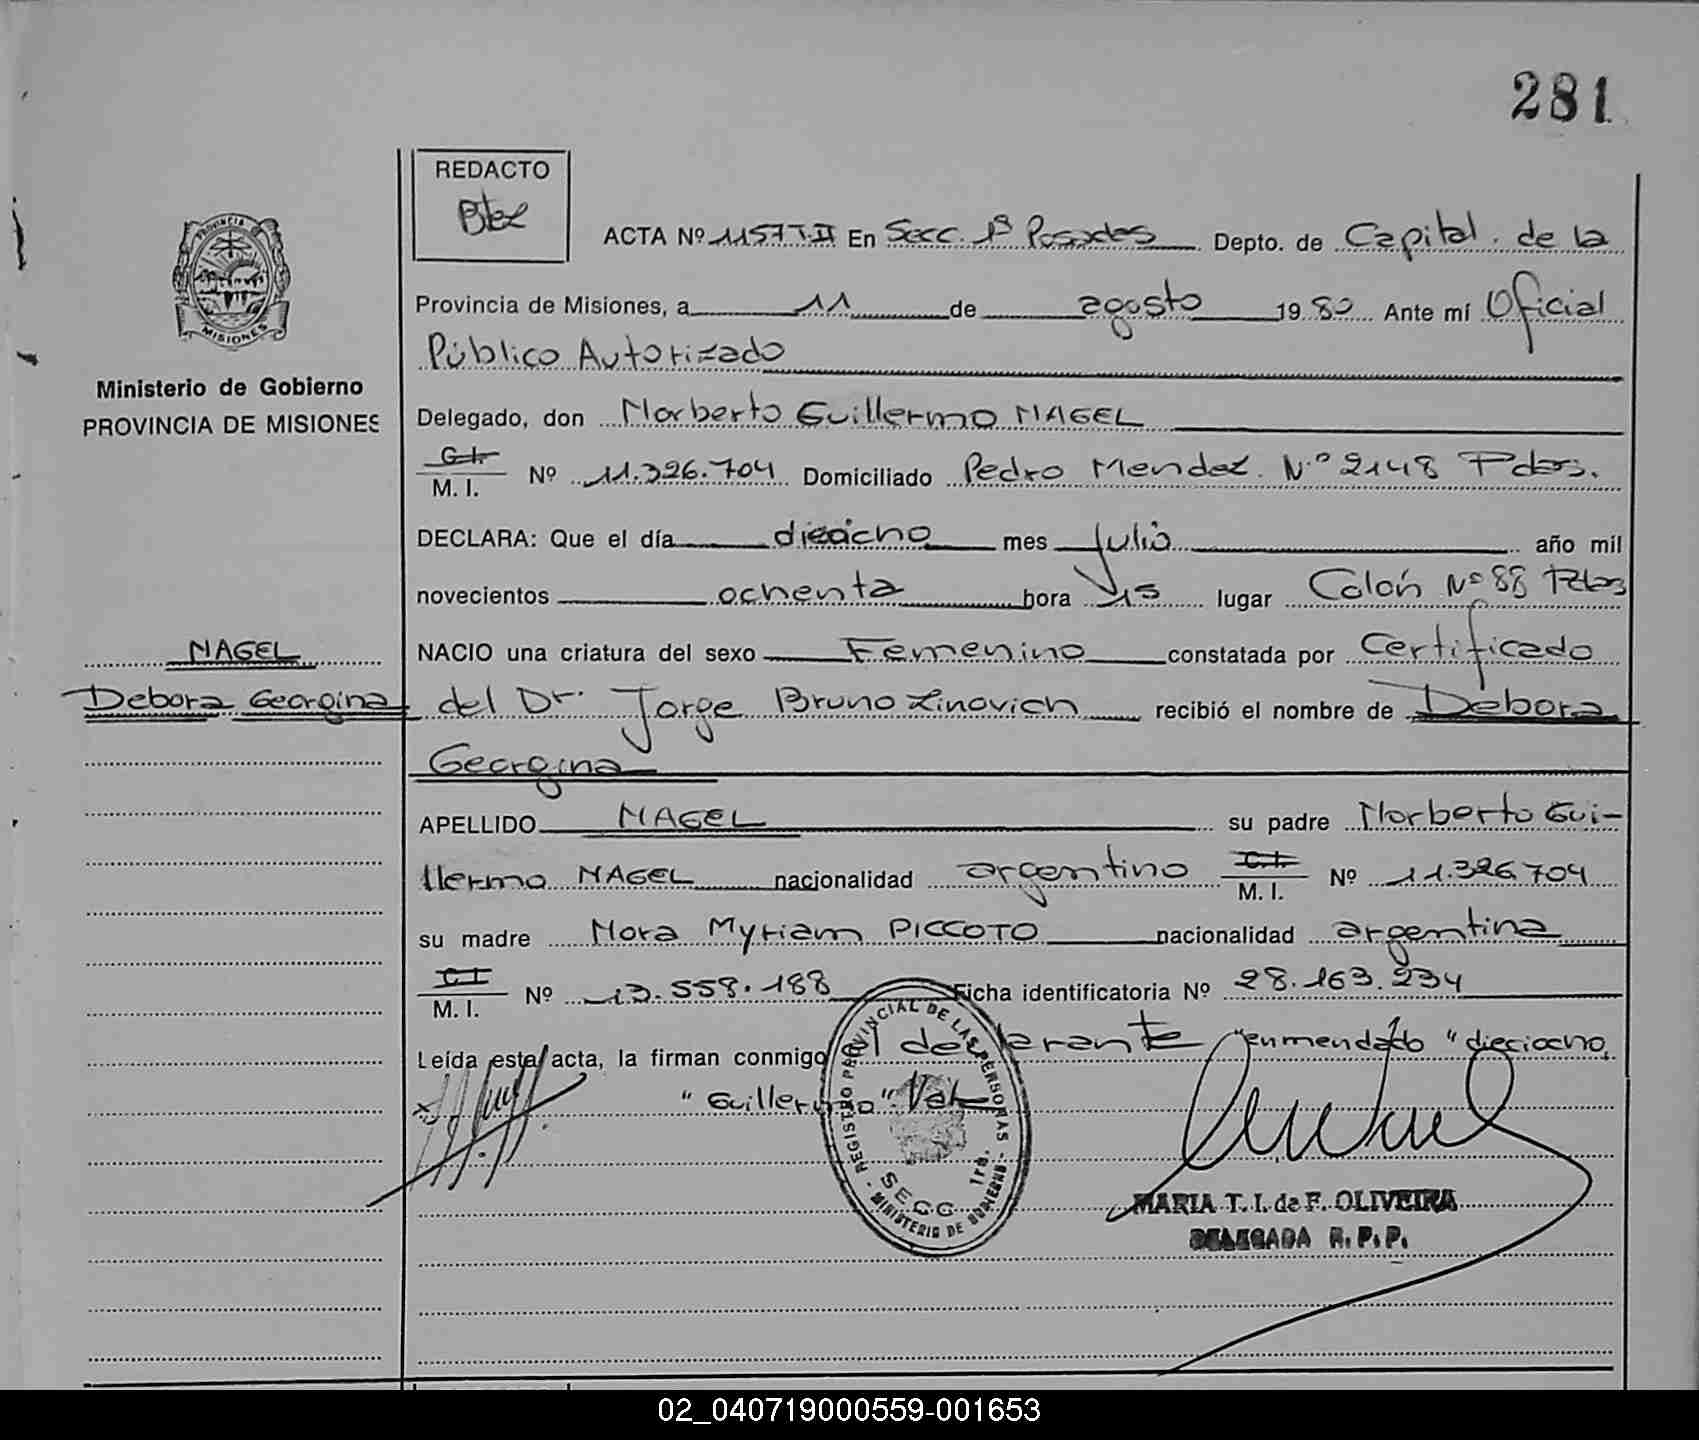 281
REDACTO
PROVINCIA DE
MISIONES
Ministerio de Gobierno
PROVINCIA DE MISIONES
ACTA Nº 1157 T.II En Secc. 1ª Posadas Depto. de Capital. de la
Provincia de Misiones, a 11 de agosto 1980 Ante mí Oficial
Público Autorizado
Delegado, don Norberto Guillermo NAGEL
C.I.
M. I. Nº 11.326.704 Domiciliado Pedro Mendez. Nº 2148 Pdas.
DECLARA: Que el día dieciocho mes Julio año mil
novecientos ochenta hora 15 lugar Colón Nº 88 Pdas
NACIO una criatura del sexo Femenino constatada por Certificado
del Dr. Jorge Bruno Zinovich recibió el nombre de Debora
Georgina
NAGEL
Debora Georgina
APELLIDO NAGEL su padre Norberto Gui-
llermo NAGEL nacionalidad argentino C.I. M. I. Nº 11.326.704
su madre Nora Myriam PICCOTO nacionalidad argentina
C.I.
M. I. Nº 13.558.188 Ficha identificatoria Nº 28.163.234
Leída esta acta, la firman conmigo el declarante "enmendado "dieciocho,
"Guillermo" Vale
REGISTRO PROVINCIAL DE LAS PERSONAS
SECC. 1ra.
- MINISTERIO DE GOBIERNO -
MARIA T. I. de F. OLIVEIRA
DELEGADA R. P. P.
02_040719000559-001653